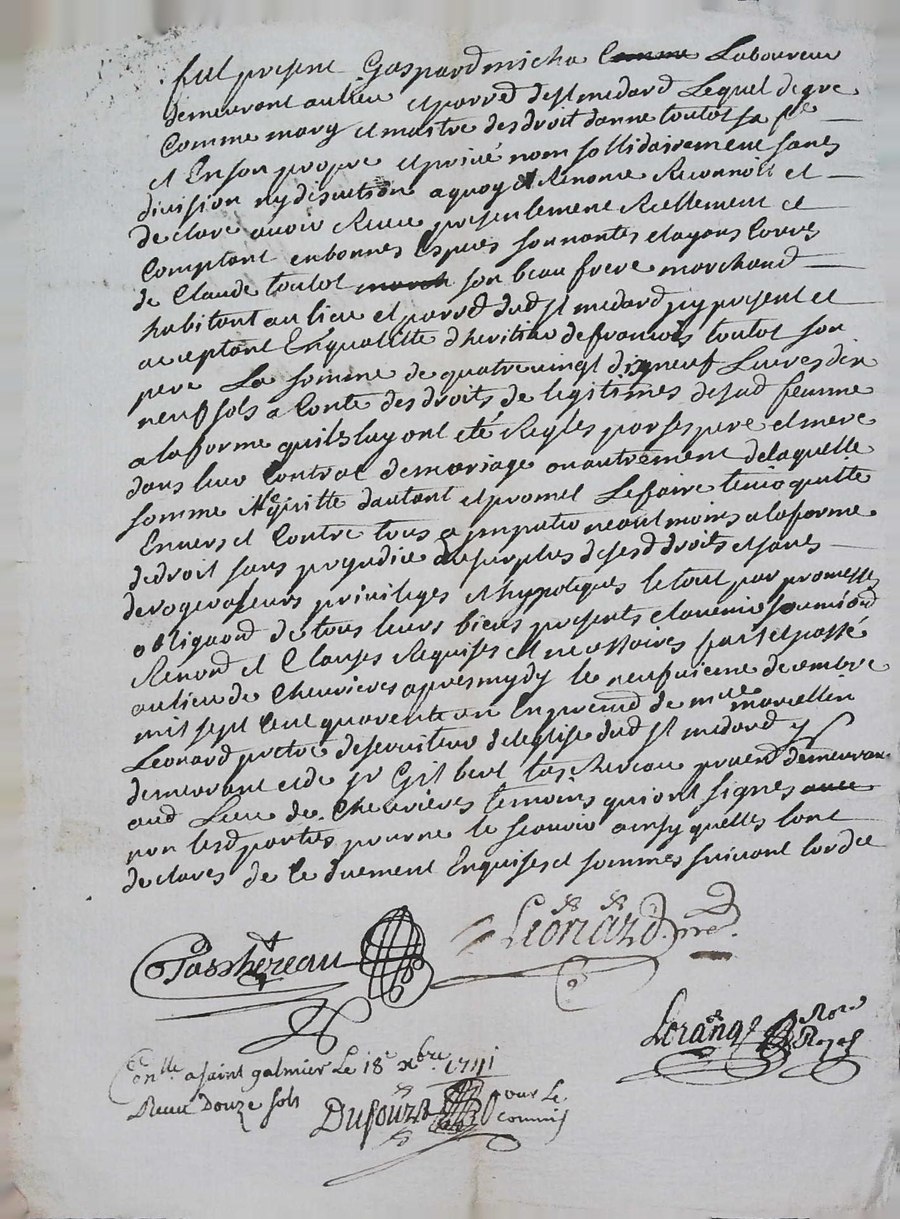 fut present Gaspard micha Comme Laboureur
demeurant au lieu et parr͠d de st medard Lequel de gre
Comme mary et maitre des droit danne toutot sa fe
et En son propre et privé nom sollidairement sans
division ny discution a quoy Renonce Reconnoit et
declare avoir Receu presentement Reellement et
Comptant en bonnes Espices sonnantes et ayans Cours
de Claude toutot march son beau frere marchand
habitant au lieu et parr͠d dud st medard icy present et
acceptant En qualitte dheritier de francois toutot son
pere La somme de quatre vingt dix neuf Livres dix
neuf sols a Conte des droits de legitimes de sad femme
a la forme quils luy ont été Reglés par ses pere et mere
dans leur Contrat de mariage ou autrement de laquelle
somme Il quitte dautant et promet Le faire tenir quitte
Envers et Contre tous a neant moins a la forme
de droit sans prejudice du surplus de sesd droits et sans
deroger a leurs privileges et hypoteques le tout par promesses
obligaõnd de tous leurs biens presents et avenir soumiõnd
Renond et Clauses Requises et necessaires fait et passé
au lieu de Chevrieres apres mydy le neufvieme decembre
mil sept Cent quarente un En presend de mre marcellin
Leonard pretre desserviteur deleglise dud st medard y
demeurant et de sr Gilbert tas. hereau demeurant
aud Lieu de Chevrieres temoins qui ont signés avec
non lesd parties pour ne le scavoir ainsy quelles lont
declarés de Ce duement Enquises et sommés suivant lordce
Tasshereau
Leonard pre.
Lorang Nore Royal
Conlle a saint galmier Le 18e xbre 1741
Receu Douze sols
Dufour pour Le commis